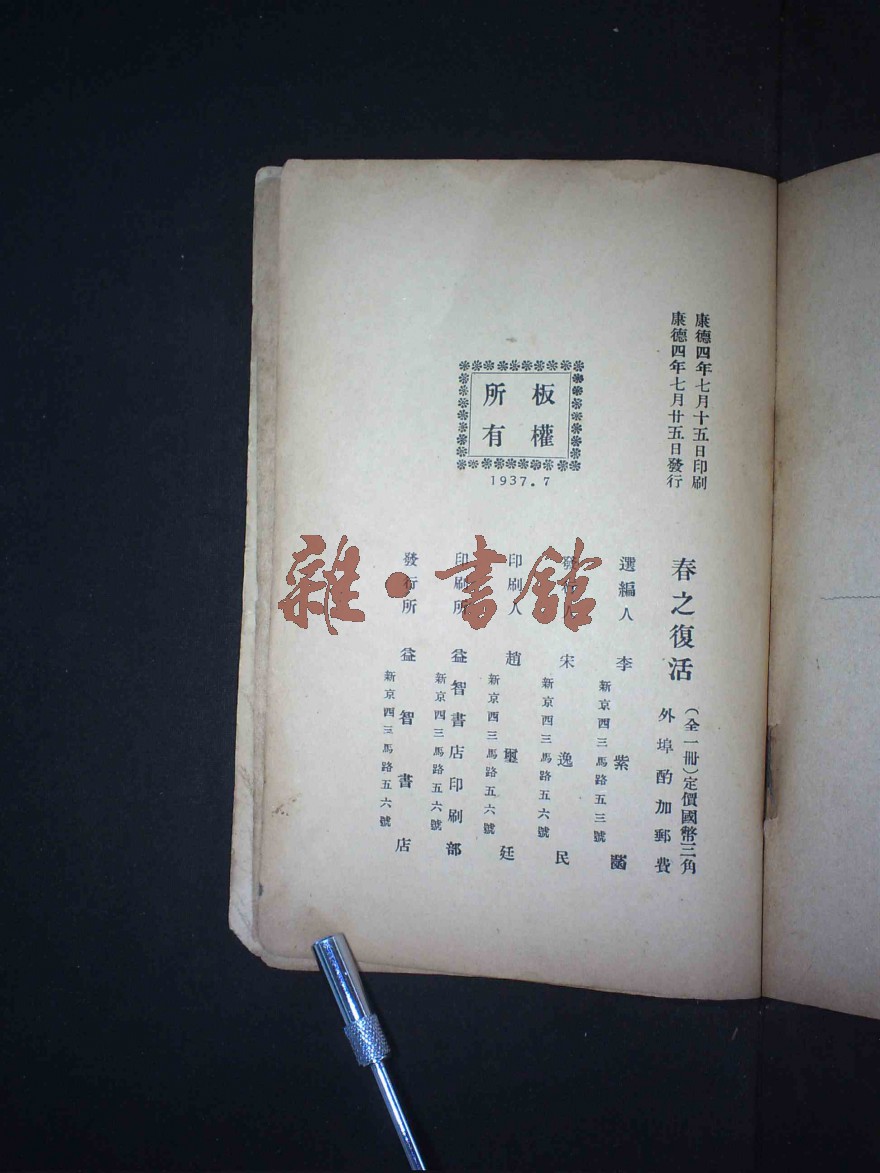 康德四年七月十五日印刷
康德四年七月廿五日發行
板權
所有
1937.7
春之復活
(全一冊)定價國幣三角
外埠酌加郵費
選編人 李紫
新京四三馬路五三號
發行人 宋逸民
新京四三馬路五六號
印刷人 趙璽廷
新京四三馬路五六號
印刷所 益智書店印刷部
新京四三馬路五六號
發行所 益智書店
新京四三馬路五六號
雜·書館